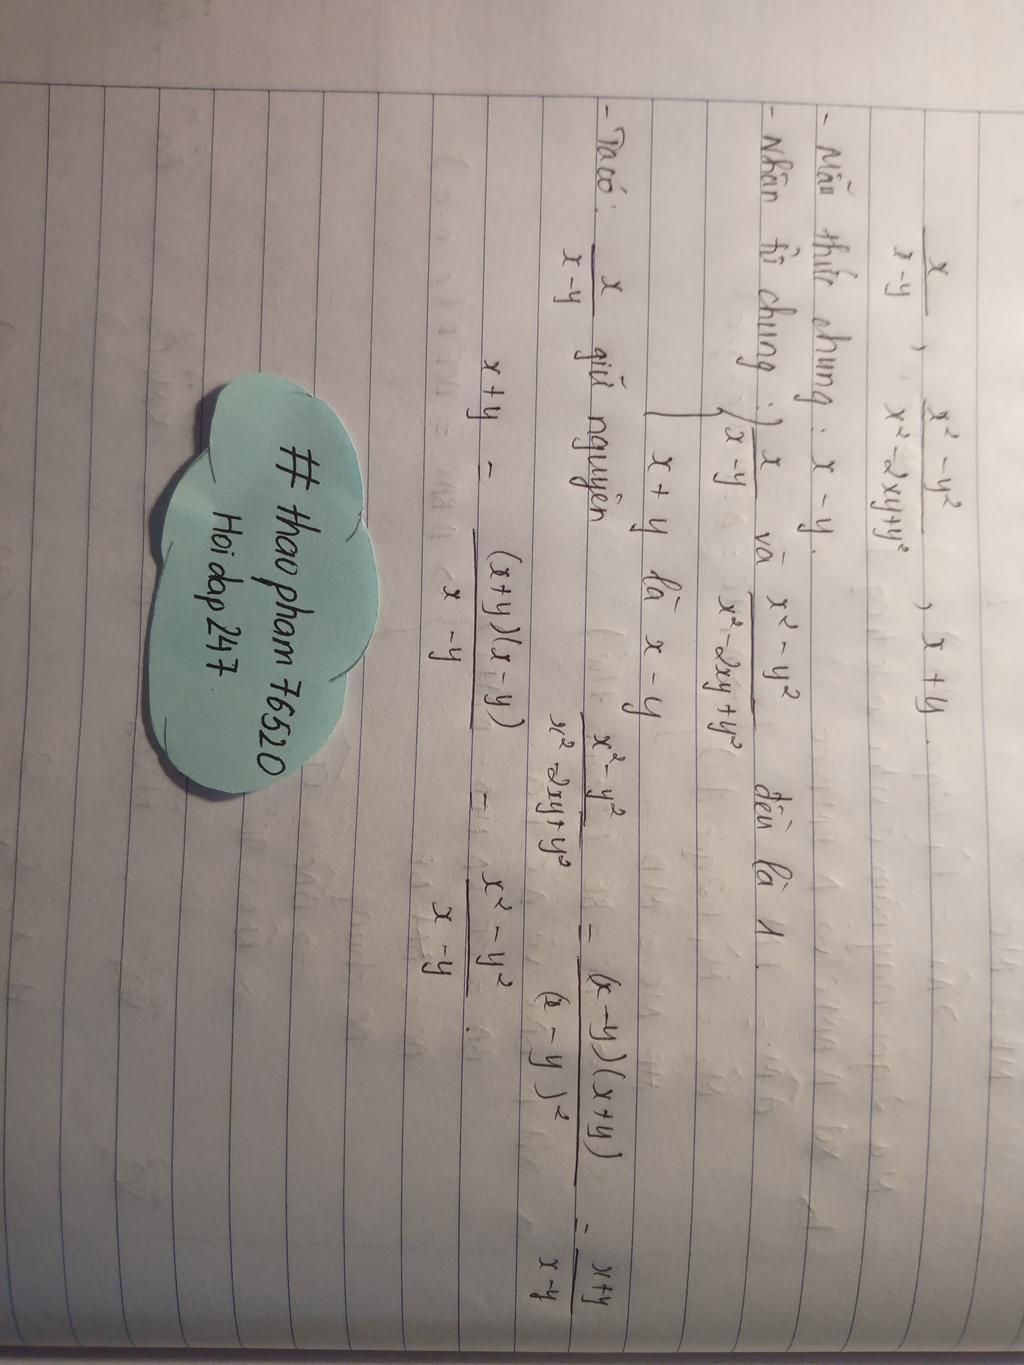 x/(x-y) , (x² - y²)/(x² - 2xy + y²) , x + y.
- Mẫu thức chung : x - y.
- Nhân tử chung : x/(x-y) và (x² - y²)/(x² - 2xy + y²) đều là 1.
x + y là x - y
- Ta có : x/(x-y) giữ nguyên (x² - y²)/(x² - 2xy + y²) = (x-y)(x+y)/(x-y)² = (x+y)/(x-y)
x + y = (x+y)(x-y)/(x-y) = (x² - y²)/(x-y).
# thaopham76520
Hoidap247